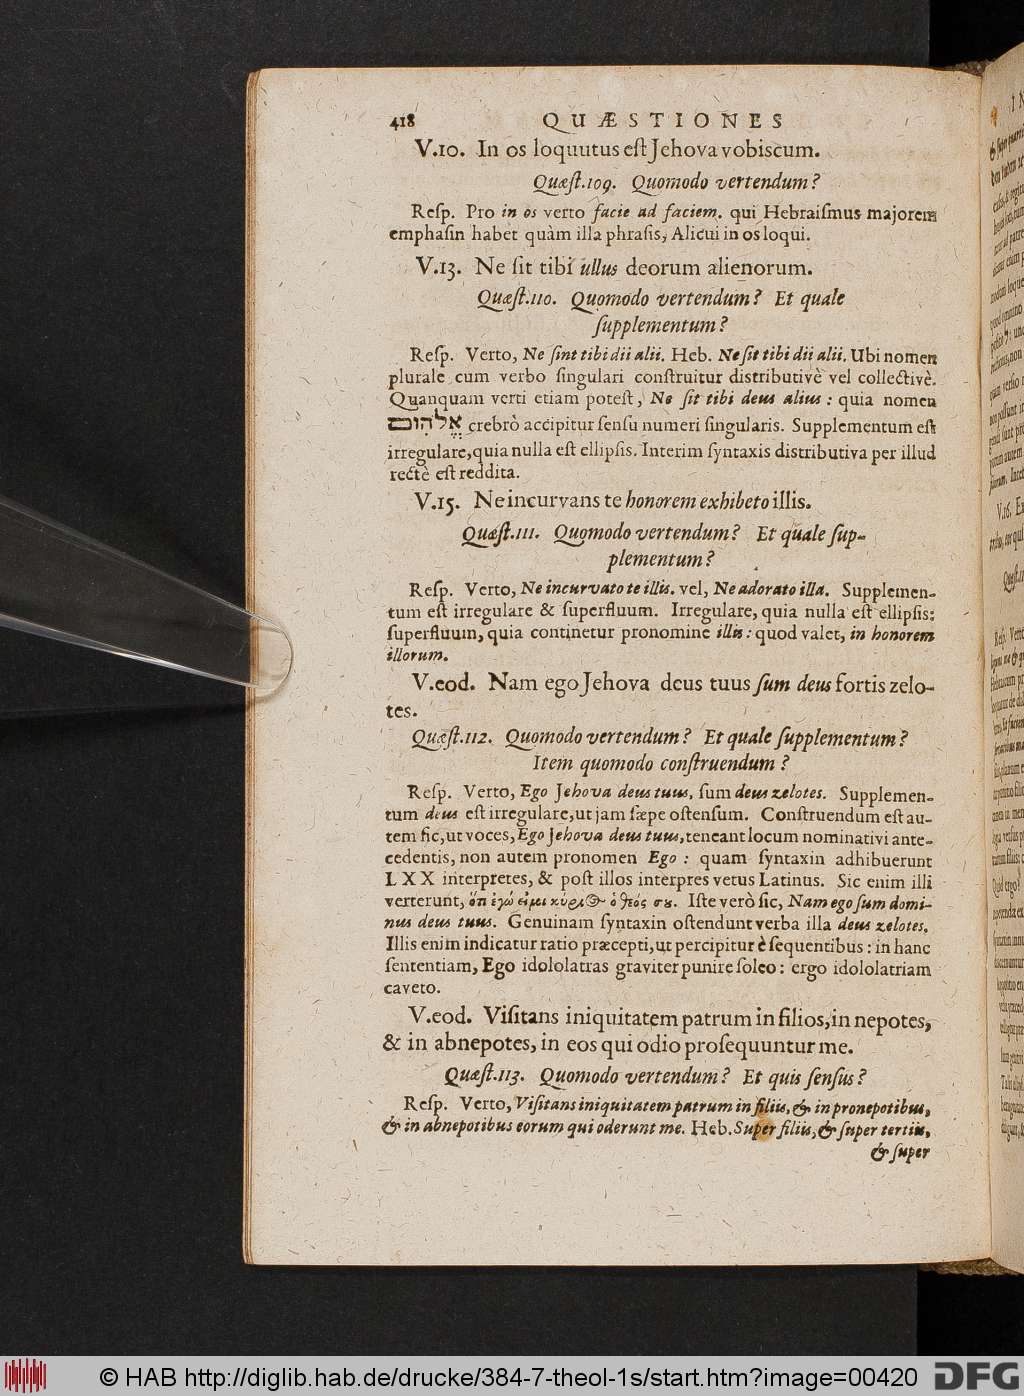 418 QUÆSTIONES
V.10. In os loquutus eſt Jehova vobiscum.
Quæſt.109. Quomodo vertendum?
Reſp. Pro in os verto facie ad faciem. qui Hebraiſmus majorem
emphaſin habet quàm illa phraſis, Alicui in os loqui.
V.13. Ne ſit tibi ullus deorum alienorum.
Quæſt.110. Quomodo vertendum? Et quale
ſupplementum?
Reſp. Verto, Ne ſint tibi dii alii. Heb. Ne ſit tibi dii alii. Ubi nomen
plurale cum verbo ſingulari conſtruitur distributivè vel collectivè.
Quanquam verti etiam poteſt, Ne ſit tibi deus alius: quia nomen
אֱלֹהִים crebrò accipitur ſenſu numeri ſingularis. Supplementum eſt
irregulare, quia nulla eſt ellipſis. Interim ſyntaxis distributiva per illud
rectè eſt reddita.
V.15. Ne incurvans te honorem exhibeto illis.
Quæſt.111. Quomodo vertendum? Et quale ſup-
plementum?
Reſp. Verto, Ne incurvato te illis. vel, Ne adorato illa. Supplemen-
tum eſt irregulare & ſuperfluum. Irregulare, quia nulla eſt ellipſis:
ſuperfluum, quia continetur pronomine illis: quod valet, in honorem
illorum.
V.eod. Nam ego Jehova deus tuus ſum deus fortis zelo-
tes.
Quæſt.112. Quomodo vertendum? Et quale ſupplementum?
Item quomodo conſtruendum?
Reſp. Verto, Ego Jehova deus tuus, ſum deus zelotes. Supplemen-
tum deus eſt irregulare, ut jam ſæpe oſtenſum. Conſtruendum eſt au-
tem ſic, ut voces, Ego Jehova deus tuus, teneant locum nominativi ante-
cedentis, non autem pronomen Ego: quam ſyntaxin adhibuerunt
LXX interpretes, & poſt illos interpres vetus Latinus. Sic enim illi
verterunt, ὅτι ἐγώ εἰμι κύριος ὁ θεός σου. Iſte verò ſic, Nam ego ſum domi-
nus deus tuus. Genuinam ſyntaxin oſtendunt verba illa deus zelotes.
Illis enim indicatur ratio præcepti, ut percipitur è ſequentibus: in hanc
ſententiam, Ego idololatras graviter punire ſoleo: ergo idololatriam
caveto.
V.eod. Viſitans iniquitatem patrum in filios, in nepotes,
& in abnepotes, in eos qui odio proſequuntur me.
Quæſt.113. Quomodo vertendum? Et quis ſenſus?
Reſp. Verto, Viſitans iniquitatem patrum in filiis, & in pronepotibus,
& in abnepotibus eorum qui oderunt me. Heb. Super filiis, & ſuper tertiis,
& ſuper
© HAB http://diglib.hab.de/drucke/384-7-theol-1s/start.htm?image=00420
DFG